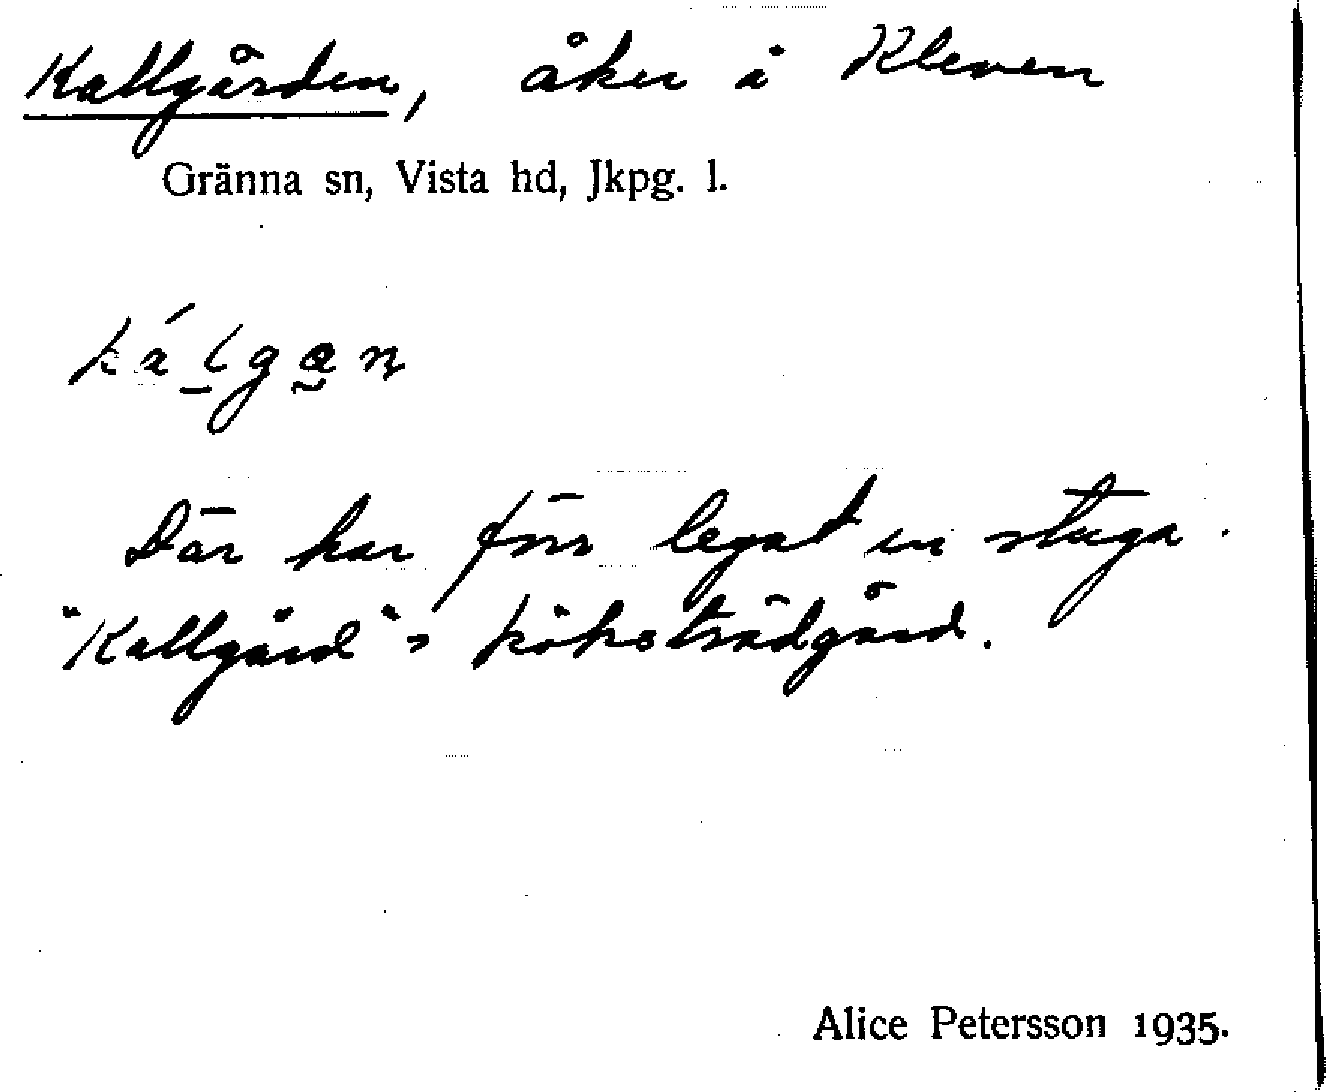 Kallgården, åker å Kleven
Gränna sn, Vista hd, Jkpg. l.
kálgan
Där har förr legat en stuga.
"Kallgård" = köksträdgård.
Alice Petersson 1935.